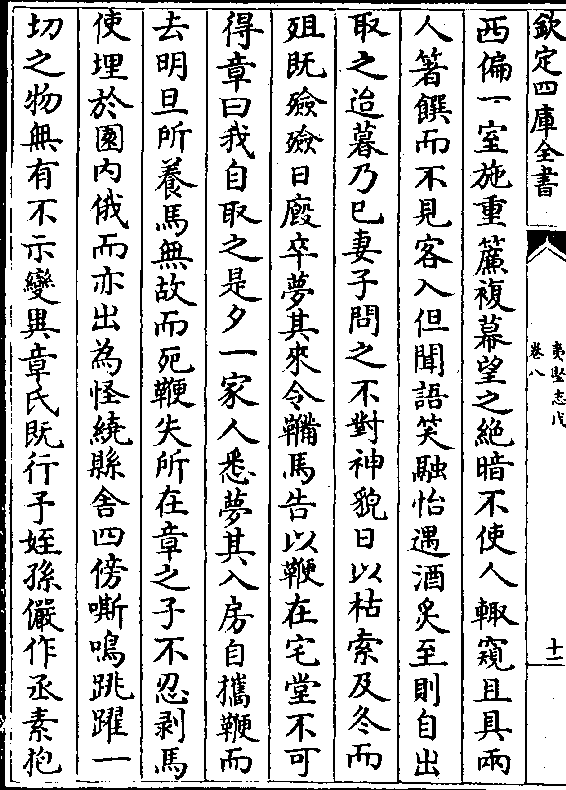 欽定四庫全書
夷堅志戊
卷八
十一
西偏一室施重簾複幕望之絶暗不使人輙窺且具兩
人箸饌而不見客入但聞語笑融怡遇酒炙至則自出
取之迨暮乃已妻子問之不對神貌日以枯索及冬而
殂既殮殮日廏卒夢其來令鞴馬告以鞭在宅堂不可
得章曰我自取之是夕一家人悉夢其入房自攜鞭而
去明旦所養馬無故而死鞭失所在章之子不忍剥馬
使埋於園内俄而亦出為怪繞縣舎四傍嘶鳴跳躍一
切之物無有不示變異章氏既行子姪孫儼作丞素抱